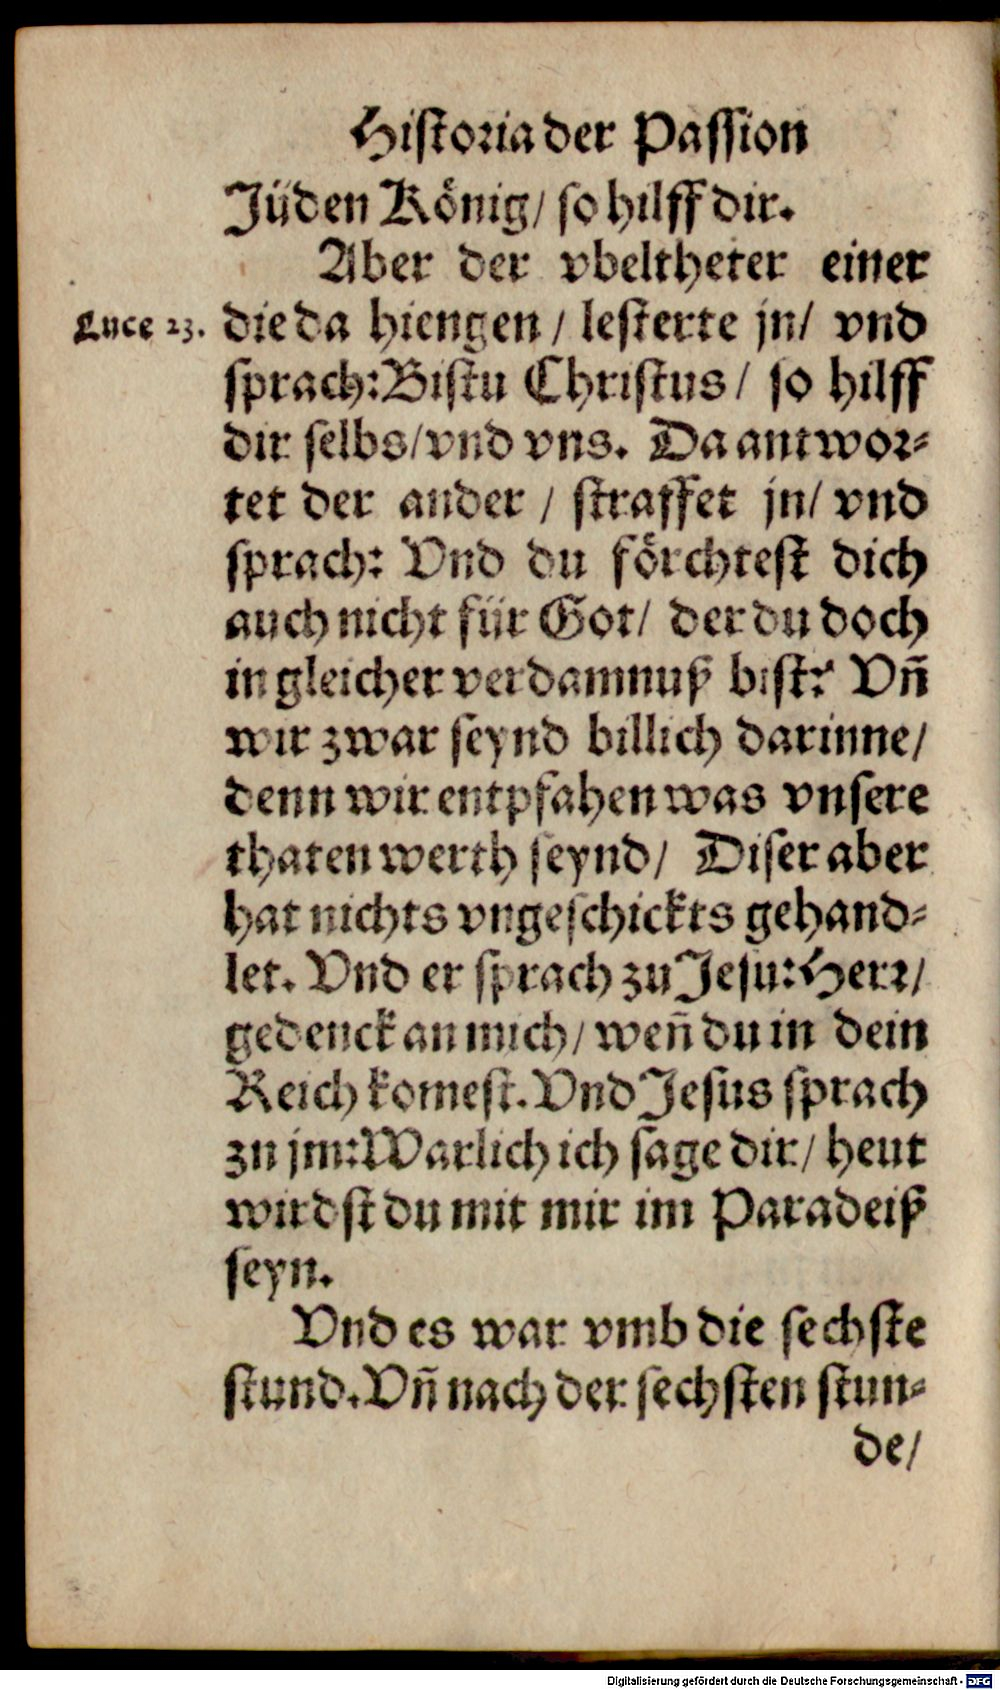 Hiſtoria der Paſſion
Jüden König/ ſo hilff dir.
Aber der vbeltheter einer
Luce 23.
die da hiengen / leſterte jn/ vnd
ſprach: Biſtu Chriſtus/ ſo hilff
dir ſelbs/ vnd vns. Da antwor⸗
tet der ander / ſtraffet jn/ vnd
ſprach: Vnd du förchteſt dich
auch nicht für Got/ der du doch
in gleicher verdamnuß biſt? Vñ
wir zwar ſeynd billich darinne/
denn wir entpfahen was vnſere
thaten werth ſeynd/ Diſer aber
hat nichts vngeſchickts gehand⸗
let. Vnd er ſprach zu Jeſu: Herr/
gedenck an mich/ weñ du in dein
Reich komeſt. Vnd Jeſus ſprach
zu jm: Warlich ich ſage dir/ heut
wirdſt du mit mir im Paradeiß
ſeyn.
Vnd es war vmb die ſechſte
ſtund. Vñ nach der ſechſten ſtun⸗
de/
Digitalisierung gefördert durch die Deutsche Forschungsgemeinschaft - DFG